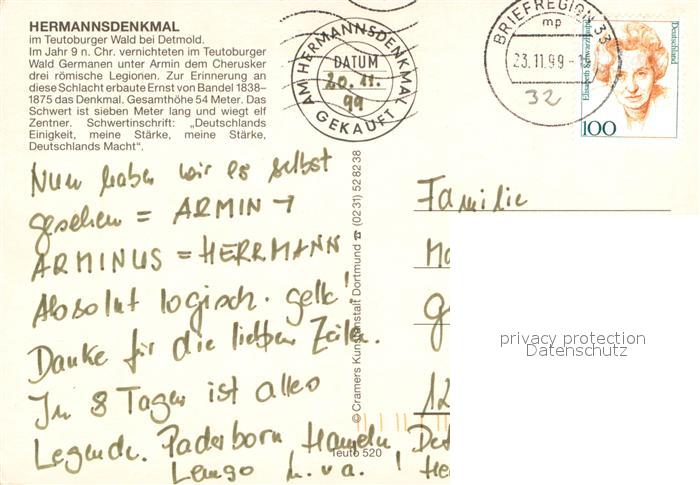 HERMANNSDENKMAL
im Teutoburger Wald bei Detmold.
Im Jahr 9 n. Chr. vernichteten im Teutoburger
Wald Germanen unter Armin dem Cherusker
drei römische Legionen. Zur Erinnerung an
diese Schlacht erbaute Ernst von Bandel 1838–
1875 das Denkmal. Gesamthöhe 54 Meter. Das
Schwert ist sieben Meter lang und wiegt elf
Zentner. Schwertinschrift: „Deutschlands
Einigkeit, meine Stärke, meine Stärke,
Deutschlands Macht“.
AM HERMANNSDENKMAL
DATUM
20. 11.
99
GEKAUFT
BRIEFREGION 33
mp
23.11.99
32
Deutschland
Elisabeth Schwarzhaupt
100
Nun haben wir es selbst
gesehen = ARMIN →
ARMINUS = HERRMANN
Absolut logisch. gelle!
Danke für die lieben Zeilen.
In 8 Tagen ist alles
Legende. Paderborn Hameln Det
Lemgo u.v.a. !
© Cramers Kunstanstalt Dortmund ☎ (0231) 528238
Teuto 520
Familie
12
privacy protection
Datenschutz